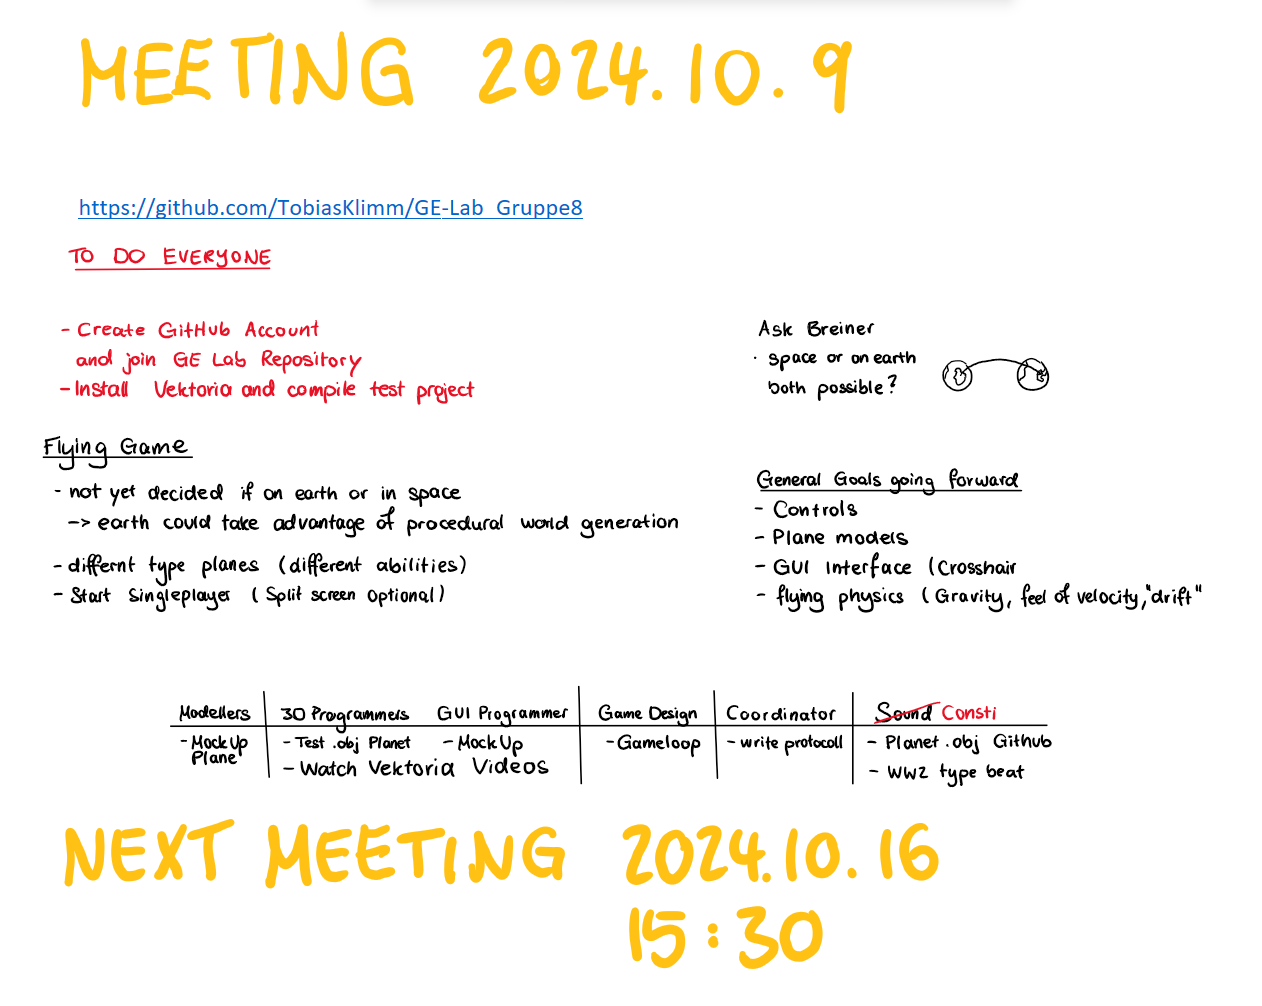 MEETING 2024.10.9
https://github.com/TobiasKlimm/GE-Lab_Gruppe8
TO DO EVERYONE
- Create GitHub Account
and join GE Lab Repository
- Install Vektoria and compile test project
Ask Breiner
· space or on earth
both possible?
Flying Game
- not yet decided if on earth or in space
-> earth could take advantage of procedural world generation
- differnt type planes (different abilities)
- Start Singleplayer (Split screen optional)
General Goals going forward
- Controls
- Plane models
- GUI Interface (Crosshair
- flying physics (Gravity, feel of velocity, "drift"
Modellers 3D Programmers GUI Programmer Game Design Coordinator Sound Consti
- MockUp - Test .obj Planet - MockUp - Gameloop - write protocoll - Planet .obj Github
Plane - Watch Vektoria Videos - WW2 type beat
NEXT MEETING 2024.10.16
15:30